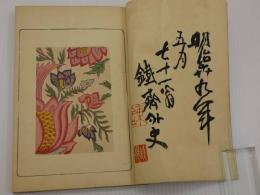 明治卅九年
五月
七十一翁
鐵斎外史